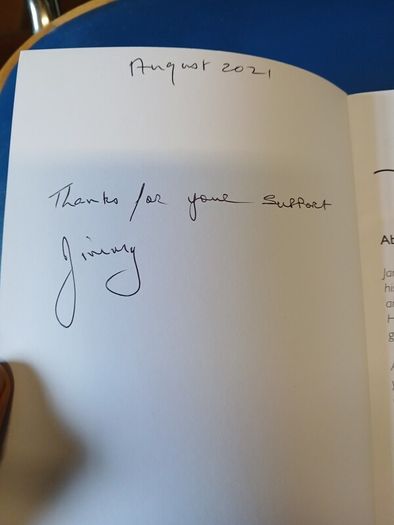 August 2021
Thanks for your support
Jimmy
Ab
Ja
hi
a
H
g
A